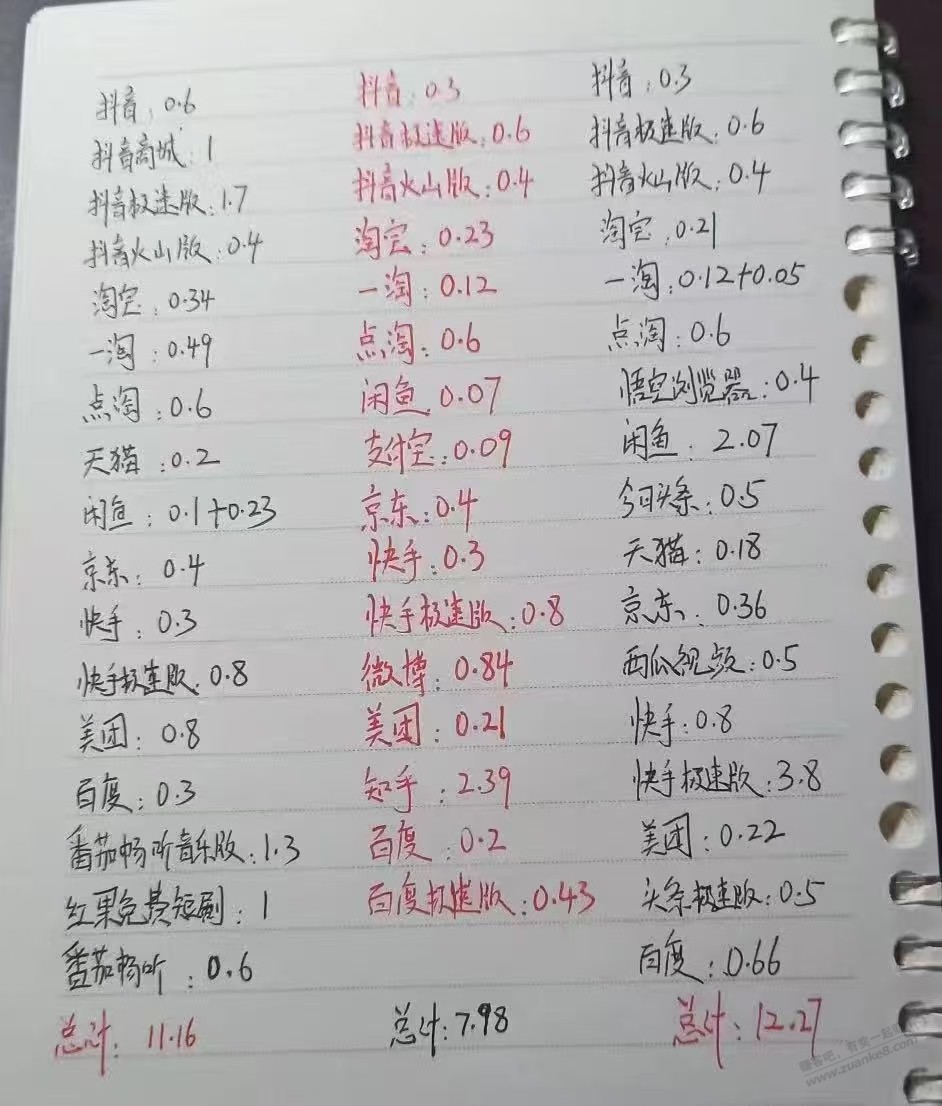 抖音：0.6
抖音商城：1
抖音极速版：1.7
抖音火山版：0.4
淘宝：0.34
一淘：0.49
点淘：0.6
天猫：0.2
闲鱼：0.1+0.23
京东：0.4
快手：0.3
快手极速版：0.8
美团：0.8
百度：0.3
番茄畅听音乐版：1.3
红果免费短剧：1
番茄畅听：0.6
总计：11.16
抖音：0.3
抖音极速版：0.6
抖音火山版：0.4
淘宝：0.23
一淘：0.12
点淘：0.6
闲鱼：0.07
支付宝：0.09
京东：0.4
快手：0.3
快手极速版：0.8
微博：0.84
美团：0.21
知乎：2.39
百度：0.2
百度极速版：0.43
总计：7.98
抖音：0.3
抖音极速版：0.6
抖音火山版：0.4
淘宝：0.21
一淘：0.12+0.05
点淘：0.6
悟空浏览器：0.4
闲鱼：2.07
今日头条：0.5
天猫：0.18
京东：0.36
西瓜视频：0.5
快手：0.8
快手极速版：3.8
美团：0.22
头条极速版：0.5
百度：0.66
总计：12.27
赚客吧，有奖一起赚
www.zuanke8.com